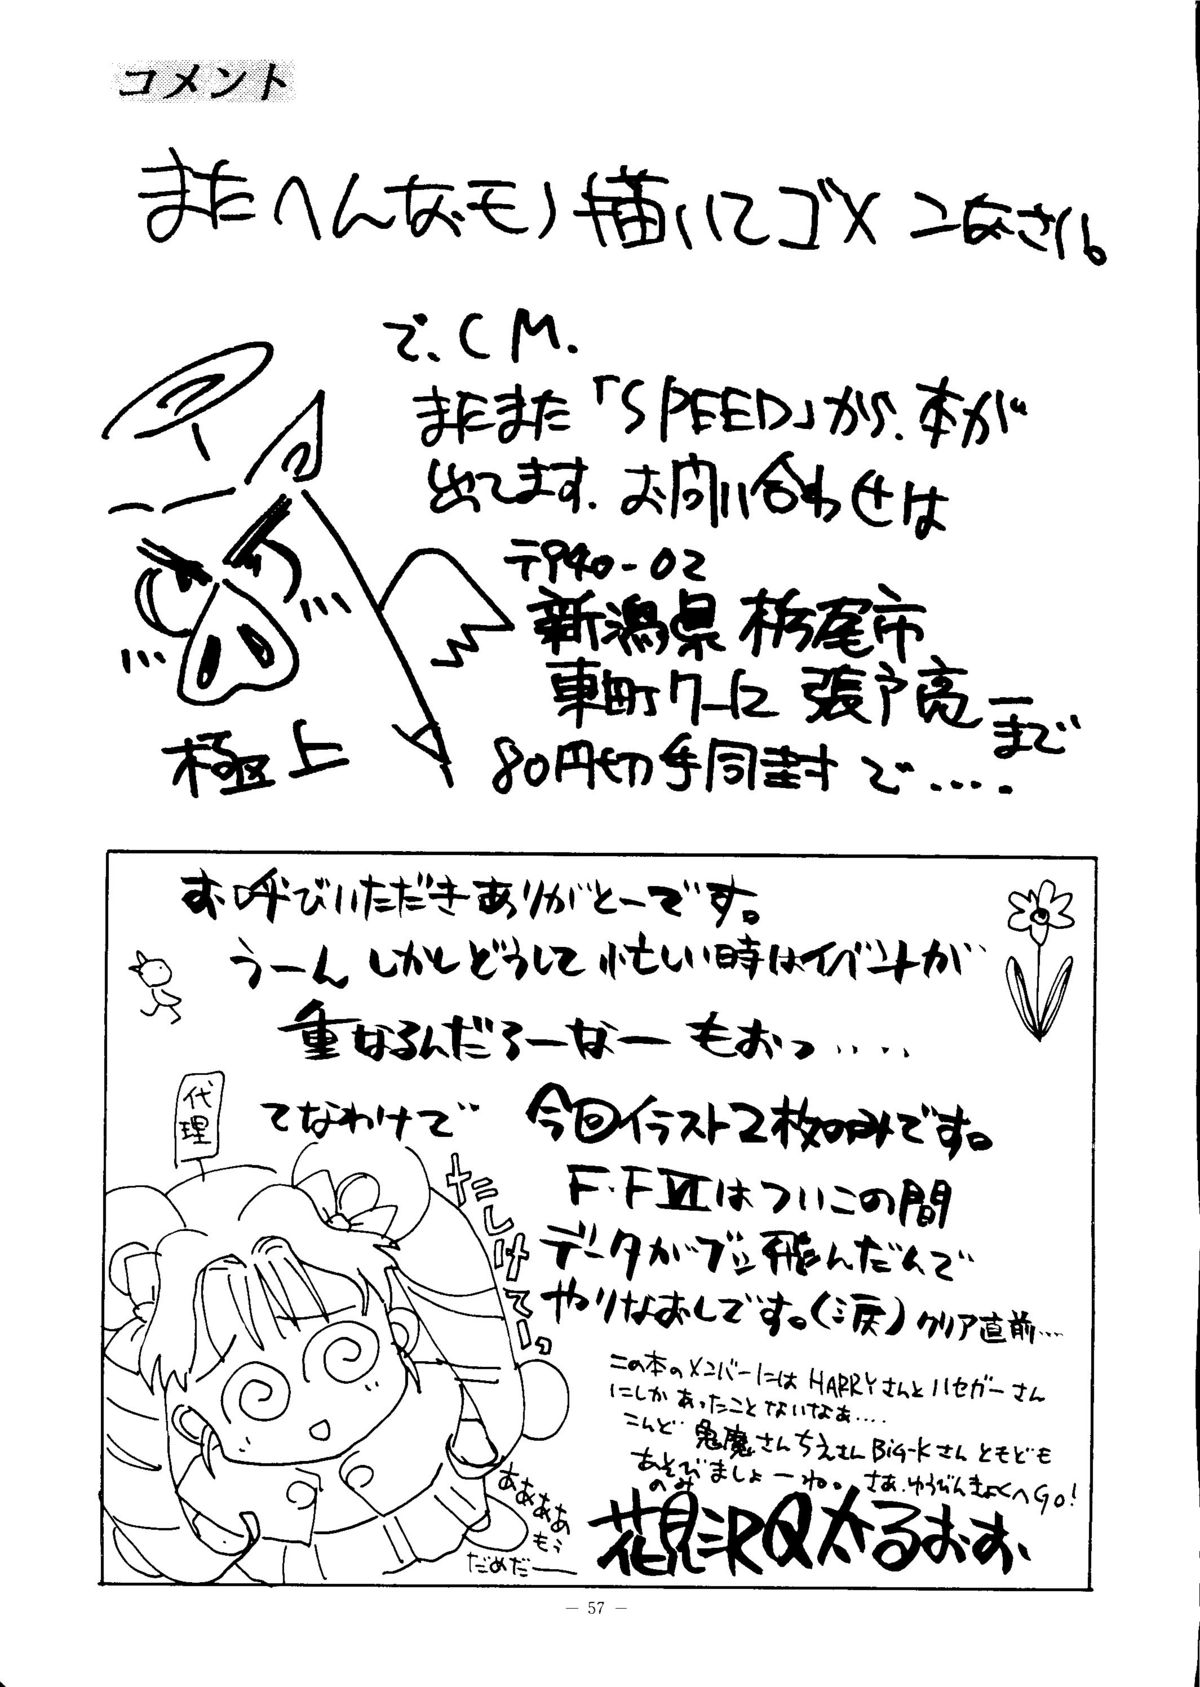 コメント
またへんなモノ描いてゴメンなさい。
で、CM.
またまた「SPEED」から、本が
出てます。お問い合わせは
〒940-02
新潟県栃尾市
東町7-12 張戸亮一まで
80円切手同封で....
極上
お呼びいただきありがとーです。
うーん しかしどうして忙しい時はイベントが
重なるんだろーなー もおっ....
代理
てなわけで 今回イラスト2枚のみです。
F.FⅥはついこの間
データがブッ飛んだんで
やりなおしです。(涙)クリア直前...
たしけてーっ
この本のメンバーにはHARRYさんとハセガーさん
にしかあったことないなぁ....
こんど 鬼魔さんちえさんBig-Kさんともども
あそびましょーね。さあ、ゆうびんきょくへGO!
のみ
ああああ
もう
だめだー
花見沢Q太るおお、
— 57 —